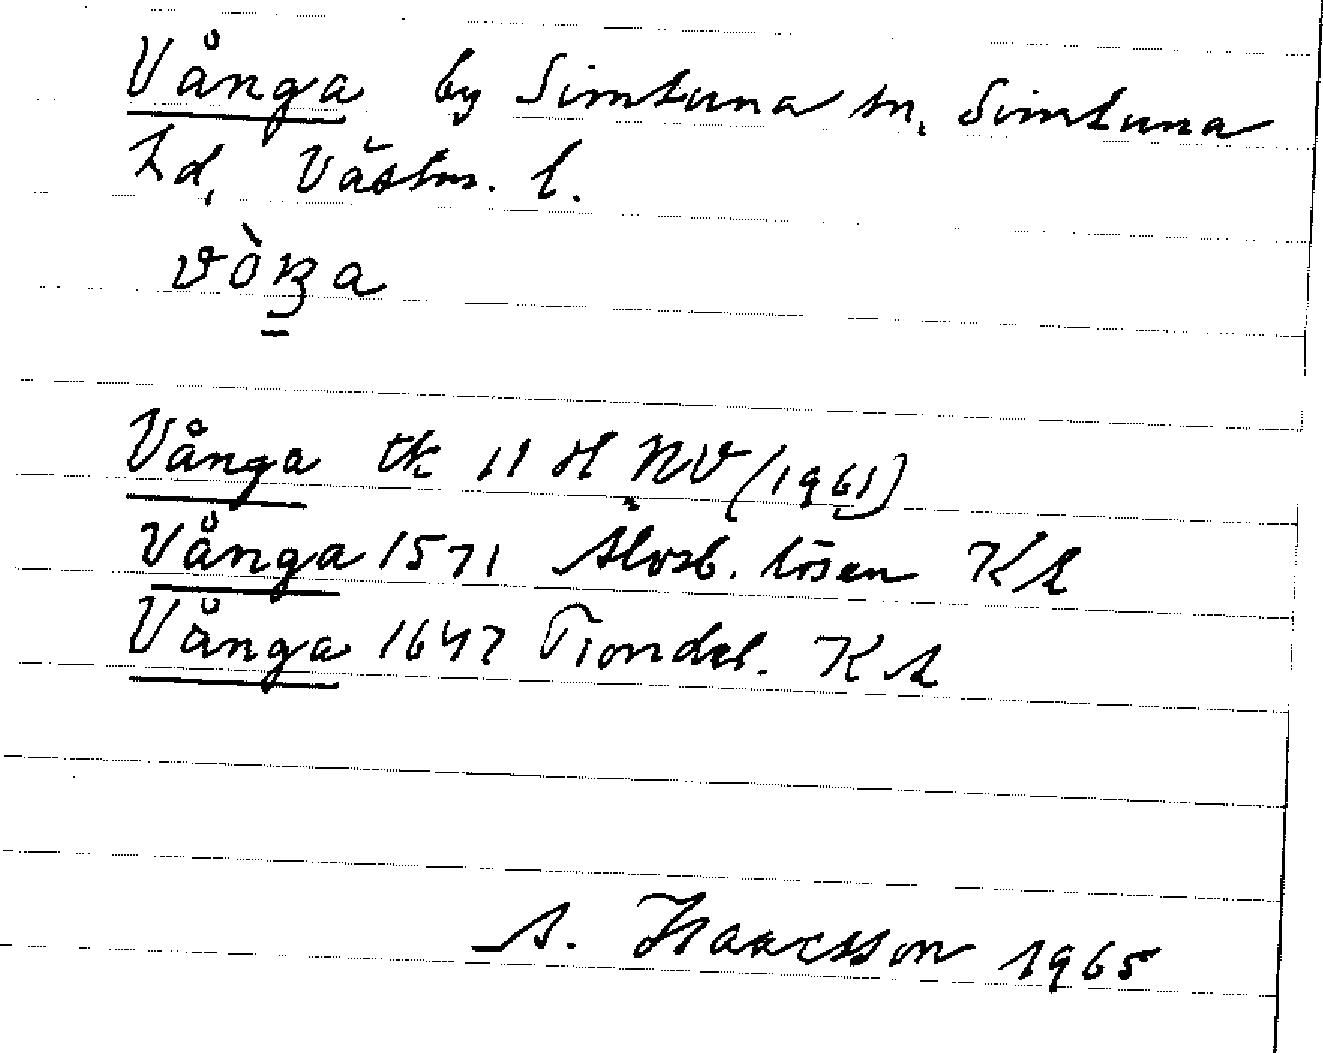 Vånga by Simtuna sn, Simtuna
hd, Västm. l.
Vånga tk 11 H NV (1961)
Vånga 1571 Älvsb. lösen KA
Vånga 1647 Tiondel. KA
A. Isaacsson 1965